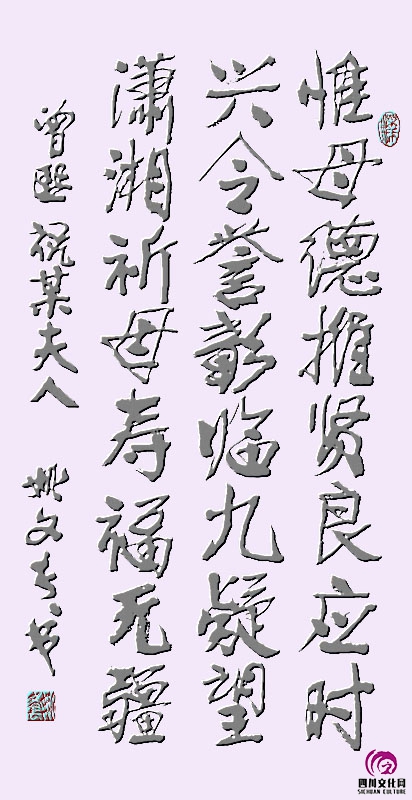 惟母德推贤良应时
兴令誉彰临九疑望
潇湘祈母寿福无疆
曾熙 祝某夫人 姚文 书
四川文化网
SICHUAN CULTURE